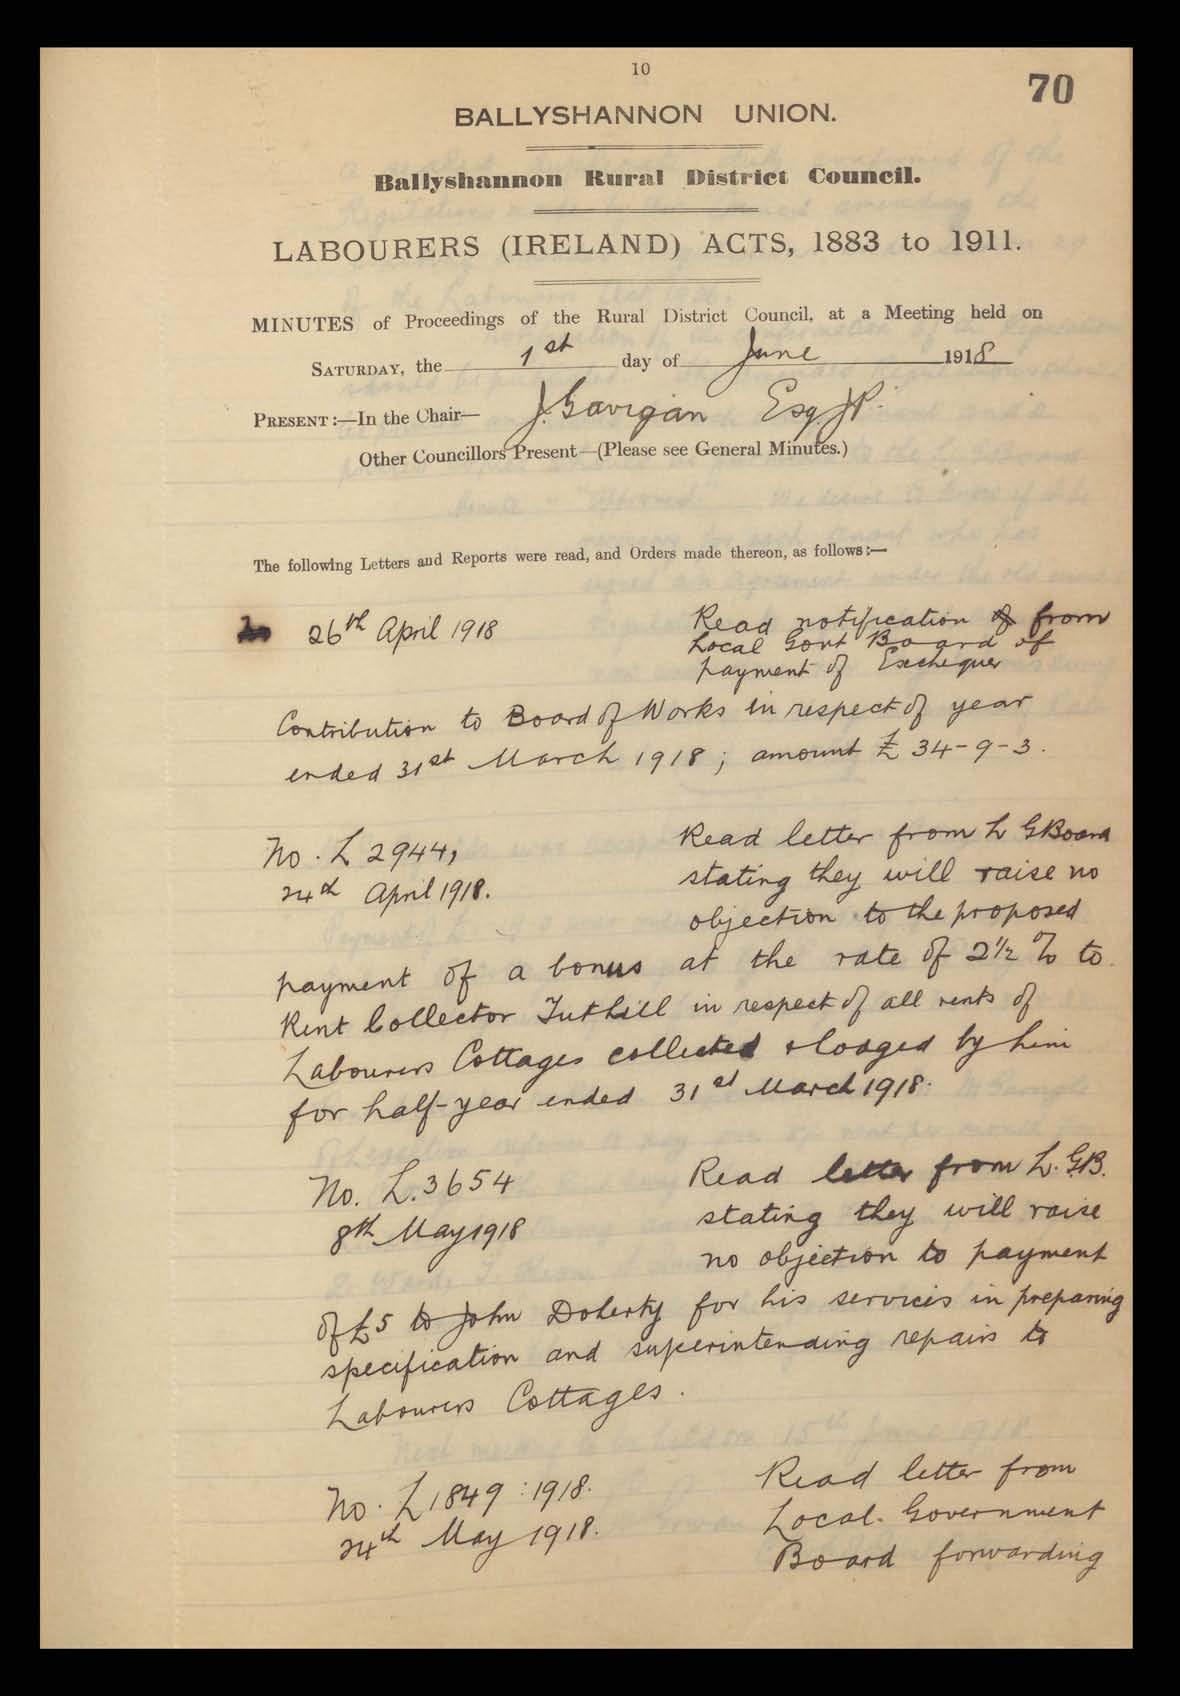 10
70
BALLYSHANNON UNION.
Ballyshannon Rural District Council.
LABOURERS (IRELAND) ACTS, 1883 to 1911.
MINUTES of Proceedings of the Rural District Council, at a Meeting held on
SATURDAY, the 1st day of June 1918
PRESENT:—In the Chair— J. Gavigan Esq. J.P.
Other Councillors Present—(Please see General Minutes.)
The following Letters and Reports were read, and Orders made thereon, as follows:—
26th April 1918
Read notification of from
Local Govt Board of
payment of Exchequer
Contribution to Board of Works in respect of year
ended 31st March 1918; amount £34-9-3.
No. L 2944,
24th April 1918.
Read letter from L G Board
stating they will raise no
objection to the proposed
payment of a bonus at the rate of 2½% to
Rent Collector Tuthill in respect of all rents of
Labourers Cottages collected & lodged by him
for half-year ended 31st March 1918.
No. L.3654
8th May 1918
Read letter from L.G.B.
stating they will raise
no objection to payment
of £5 to John Doherty for his services in preparing
specification and superintending repairs to
Labourers Cottages.
No. L 1849:1918.
24th May 1918.
Read letter from
Local Government
Board forwarding